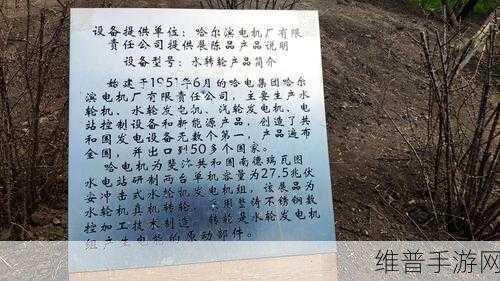 设备提供单位：哈尔滨电机厂有限
责任公司提供展陈品产品说明
设备型号：水转轮产品简介
始建于1951年6月的哈电集团哈尔
滨电机厂有限责任公司，主要生产水
轮机、水轮发电机、汽轮发电机、电
站控制设备和新能源产品，创造了共
和国发电设备无数个第一，产品遍布
全国，并出口到50多个国家。
哈电机为斐济共和国南德瑞瓦图
水电站研制两台单机容量为27.5兆伏
安冲击式水轮机发电机组，该展品为
水轮机真机转轮，采用整铸不锈钢数
控加工技术制造，转轮是水轮发电机
组产生电能的原动部件。
维普手游网